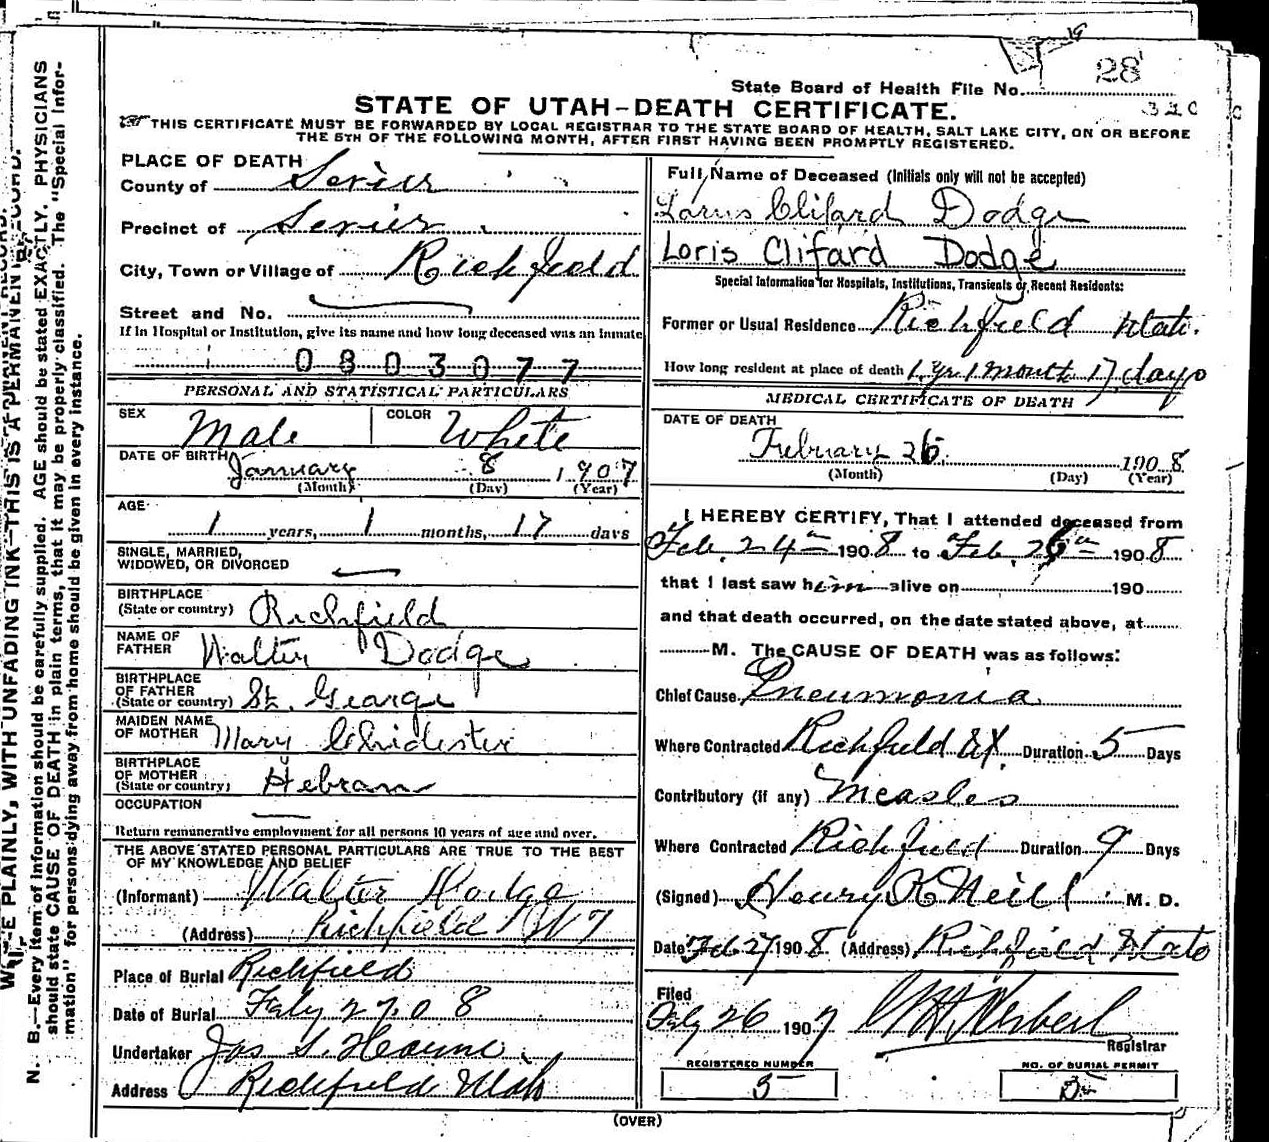 28
State Board of Health File No.
320
STATE OF UTAH–DEATH CERTIFICATE.
THIS CERTIFICATE MUST BE FORWARDED BY LOCAL REGISTRAR TO THE STATE BOARD OF HEALTH, SALT LAKE CITY, ON OR BEFORE
THE 5TH OF THE FOLLOWING MONTH, AFTER FIRST HAVING BEEN PROMPTLY REGISTERED.
PLACE OF DEATH
County of Sevier
Precinct of Sevier
City, Town or Village of Richfield
Street and No.
If in Hospital or Institution, give its name and how long deceased was an inmate
0803077
PERSONAL AND STATISTICAL PARTICULARS
SEX Male COLOR White
DATE OF BIRTH January 8 1907
(Month) (Day) (Year)
AGE
1 years, 1 months, 17 days
SINGLE, MARRIED,
WIDOWED, OR DIVORCED
BIRTHPLACE
(State or country) Richfield
NAME OF
FATHER Walter Dodge
BIRTHPLACE
OF FATHER
(State or country) St. George
MAIDEN NAME
OF MOTHER Mary Chidester
BIRTHPLACE
OF MOTHER
(State or country) Hebron
OCCUPATION
Return remunerative employment for all persons 10 years of age and over.
THE ABOVE STATED PERSONAL PARTICULARS ARE TRUE TO THE BEST
OF MY KNOWLEDGE AND BELIEF
(Informant) Walter Dodge
(Address) Richfield
Place of Burial Richfield
Date of Burial Feby 27. 08
Undertaker Jas S. Horne
Address Richfield Utah
Full Name of Deceased (Initials only will not be accepted)
Lorus Clifard Dodge
Loris Clifard Dodge
Special Information for Hospitals, Institutions, Transients or Recent Residents:
Former or Usual Residence Richfield Utah.
How long resident at place of death 1 yr 1 month 17 days
MEDICAL CERTIFICATE OF DEATH
DATE OF DEATH
February 26. 1908
(Month) (Day) (Year)
I HEREBY CERTIFY, That I attended deceased from
Feb. 24th 1908 to Feb. 26th 1908
that I last saw him alive on 190
and that death occurred, on the date stated above, at
M. The CAUSE OF DEATH was as follows:
Chief Cause Pneumonia
Where Contracted Richfield Ut. Duration 5 Days
Contributory (if any) Measles
Where Contracted Richfield Duration 9 Days
(Signed) Henry K Neill M. D.
Date Feb 27 1908 (Address) Richfield Utah
Filed
Feby 26 1907 Herbert
Registrar
REGISTERED NUMBER
5
NO. OF BURIAL PERMIT
(OVER)
WRITE PLAINLY, WITH UNFADING INK—THIS IS A PERMANENT RECORD.
N. B.—Every item of information should be carefully supplied. AGE should be stated EXACTLY. PHYSICIANS
should state CAUSE OF DEATH in plain terms, that it may be properly classified. The "Special Infor-
mation" for persons dying away from home should be given in every instance.